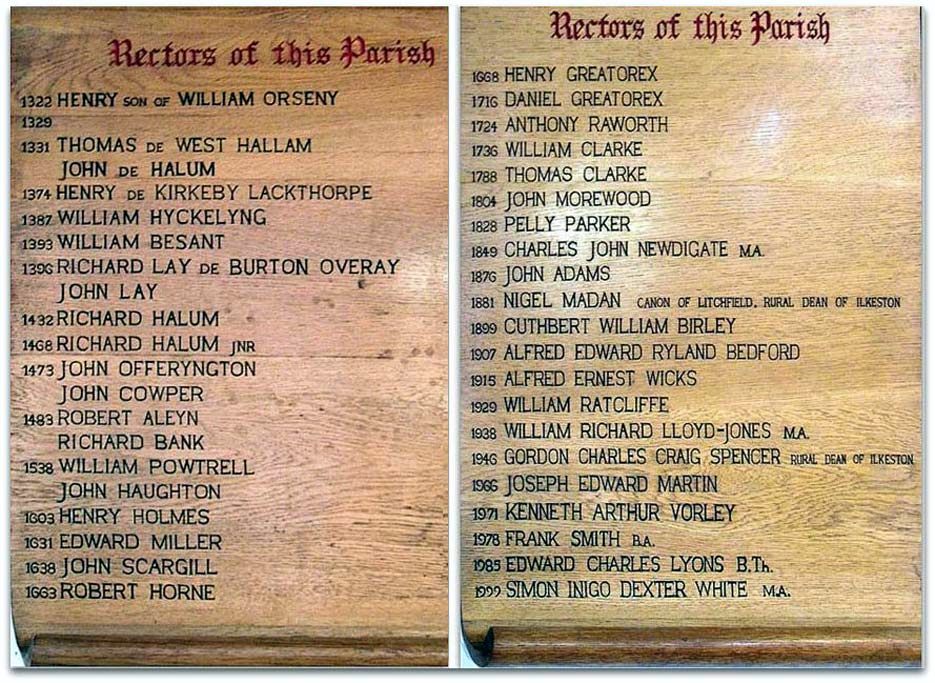 Rectors of this Parish
1322 HENRY SON OF WILLIAM ORSENY
1329
1331 THOMAS DE WEST HALLAM
JOHN DE HALUM
1374 HENRY DE KIRKEBY LACKTHORPE
1387 WILLIAM HYCKELYNG
1393 WILLIAM BESANT
1396 RICHARD LAY DE BURTON OVERAY
JOHN LAY
1432 RICHARD HALUM
1468 RICHARD HALUM JNR
1473 JOHN OFFERYNGTON
JOHN COWPER
1483 ROBERT ALEYN
RICHARD BANK
1538 WILLIAM POWTRELL
JOHN HAUGHTON
1603 HENRY HOLMES
1631 EDWARD MILLER
1638 JOHN SCARGILL
1663 ROBERT HORNE
Rectors of this Parish
1668 HENRY GREATOREX
1716 DANIEL GREATOREX
1724 ANTHONY RAWORTH
1736 WILLIAM CLARKE
1788 THOMAS CLARKE
1804 JOHN MOREWOOD
1828 PELLY PARKER
1849 CHARLES JOHN NEWDIGATE M.A.
1876 JOHN ADAMS
1881 NIGEL MADAN CANON OF LITCHFIELD, RURAL DEAN OF ILKESTON
1899 CUTHBERT WILLIAM BIRLEY
1907 ALFRED EDWARD RYLAND BEDFORD
1915 ALFRED ERNEST WICKS
1929 WILLIAM RATCLIFFE
1938 WILLIAM RICHARD LLOYD-JONES M.A.
1946 GORDON CHARLES CRAIG SPENCER RURAL DEAN OF ILKESTON
1966 JOSEPH EDWARD MARTIN
1971 KENNETH ARTHUR VORLEY
1978 FRANK SMITH B.A.
1985 EDWARD CHARLES LYONS B.Th.
1999 SIMON INIGO DEXTER WHITE M.A.